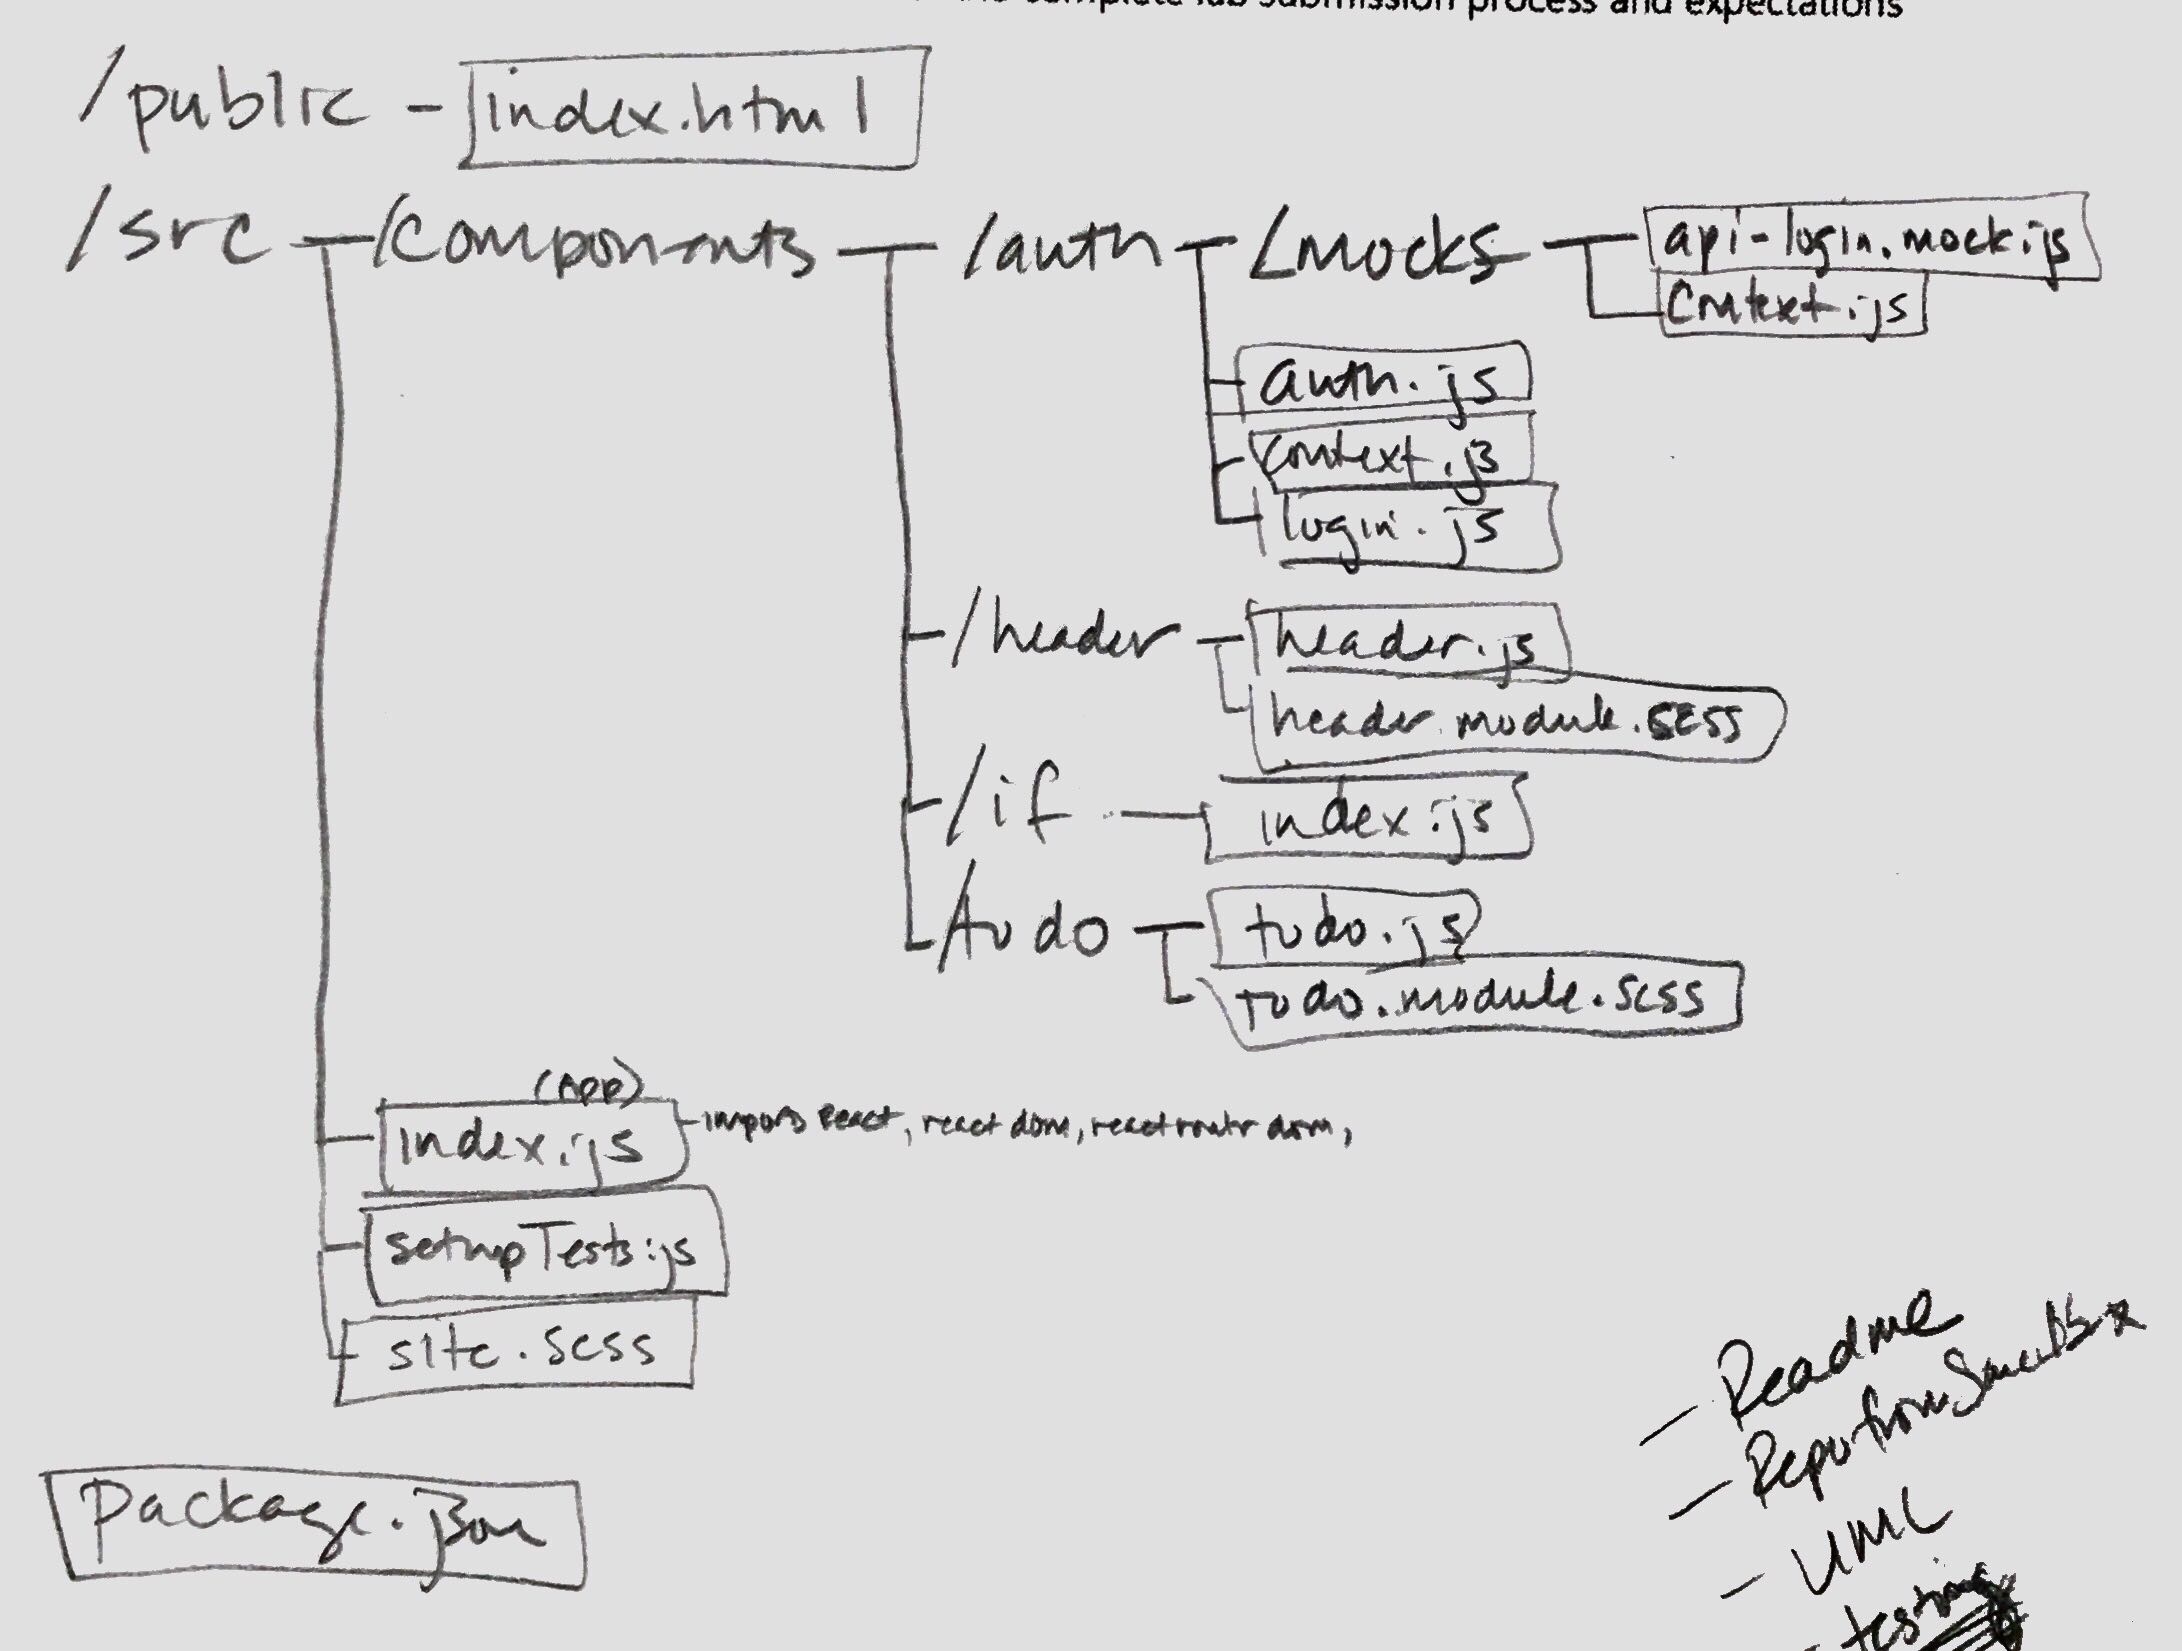 complete lab submission process and expectations
/public - index.html
/src /components /auth /mocks api-login.mock.js
context.js
auth.js
context.js
login.js
/header header.js
header.module.scss
/if index.js
/todo todo.js
todo.module.scss
(App)
index.js - imports React, react dom, react router dom,
setupTests.js
site.scss
package.json
- Readme
- Repo from
- UML
- testing